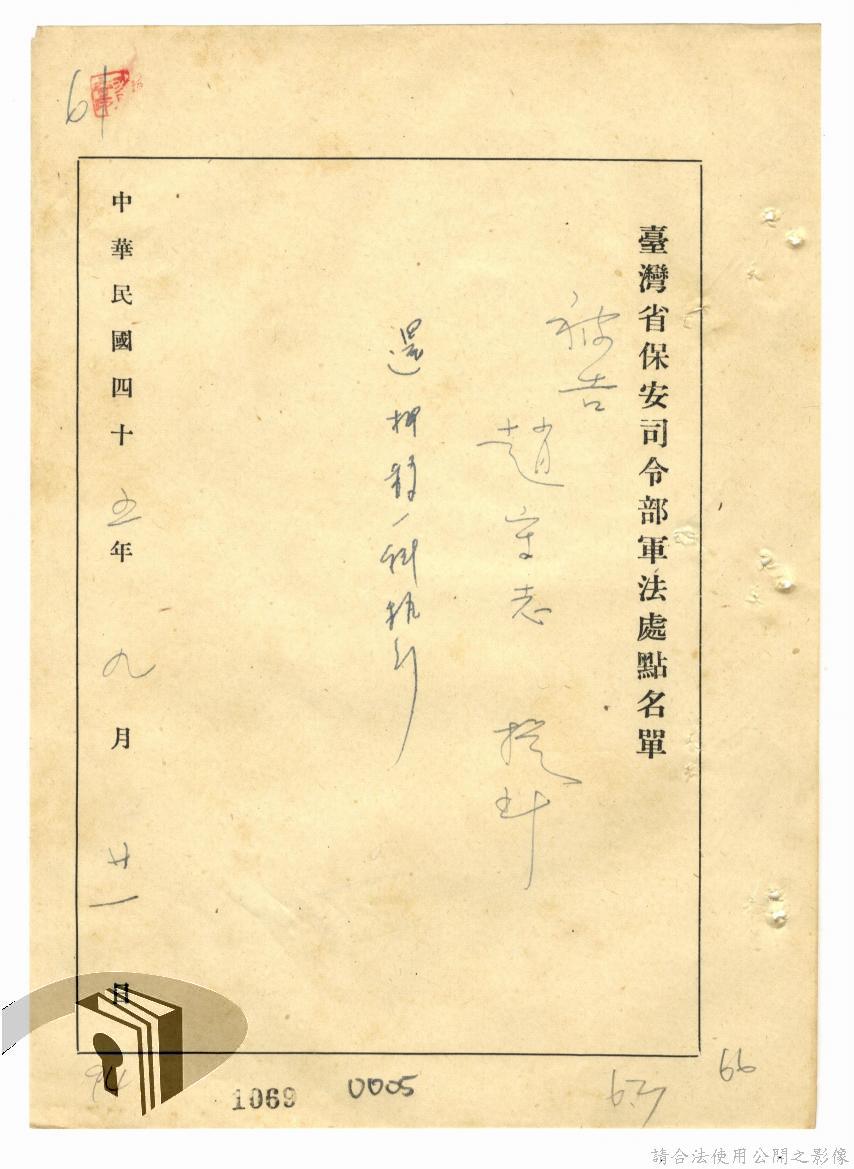 臺灣省保安司令部軍法處點名單
被告
趙守志 提到
還押
中華民國四十五年九月廿一日
1069 0005
66
請合法使用公開之影像